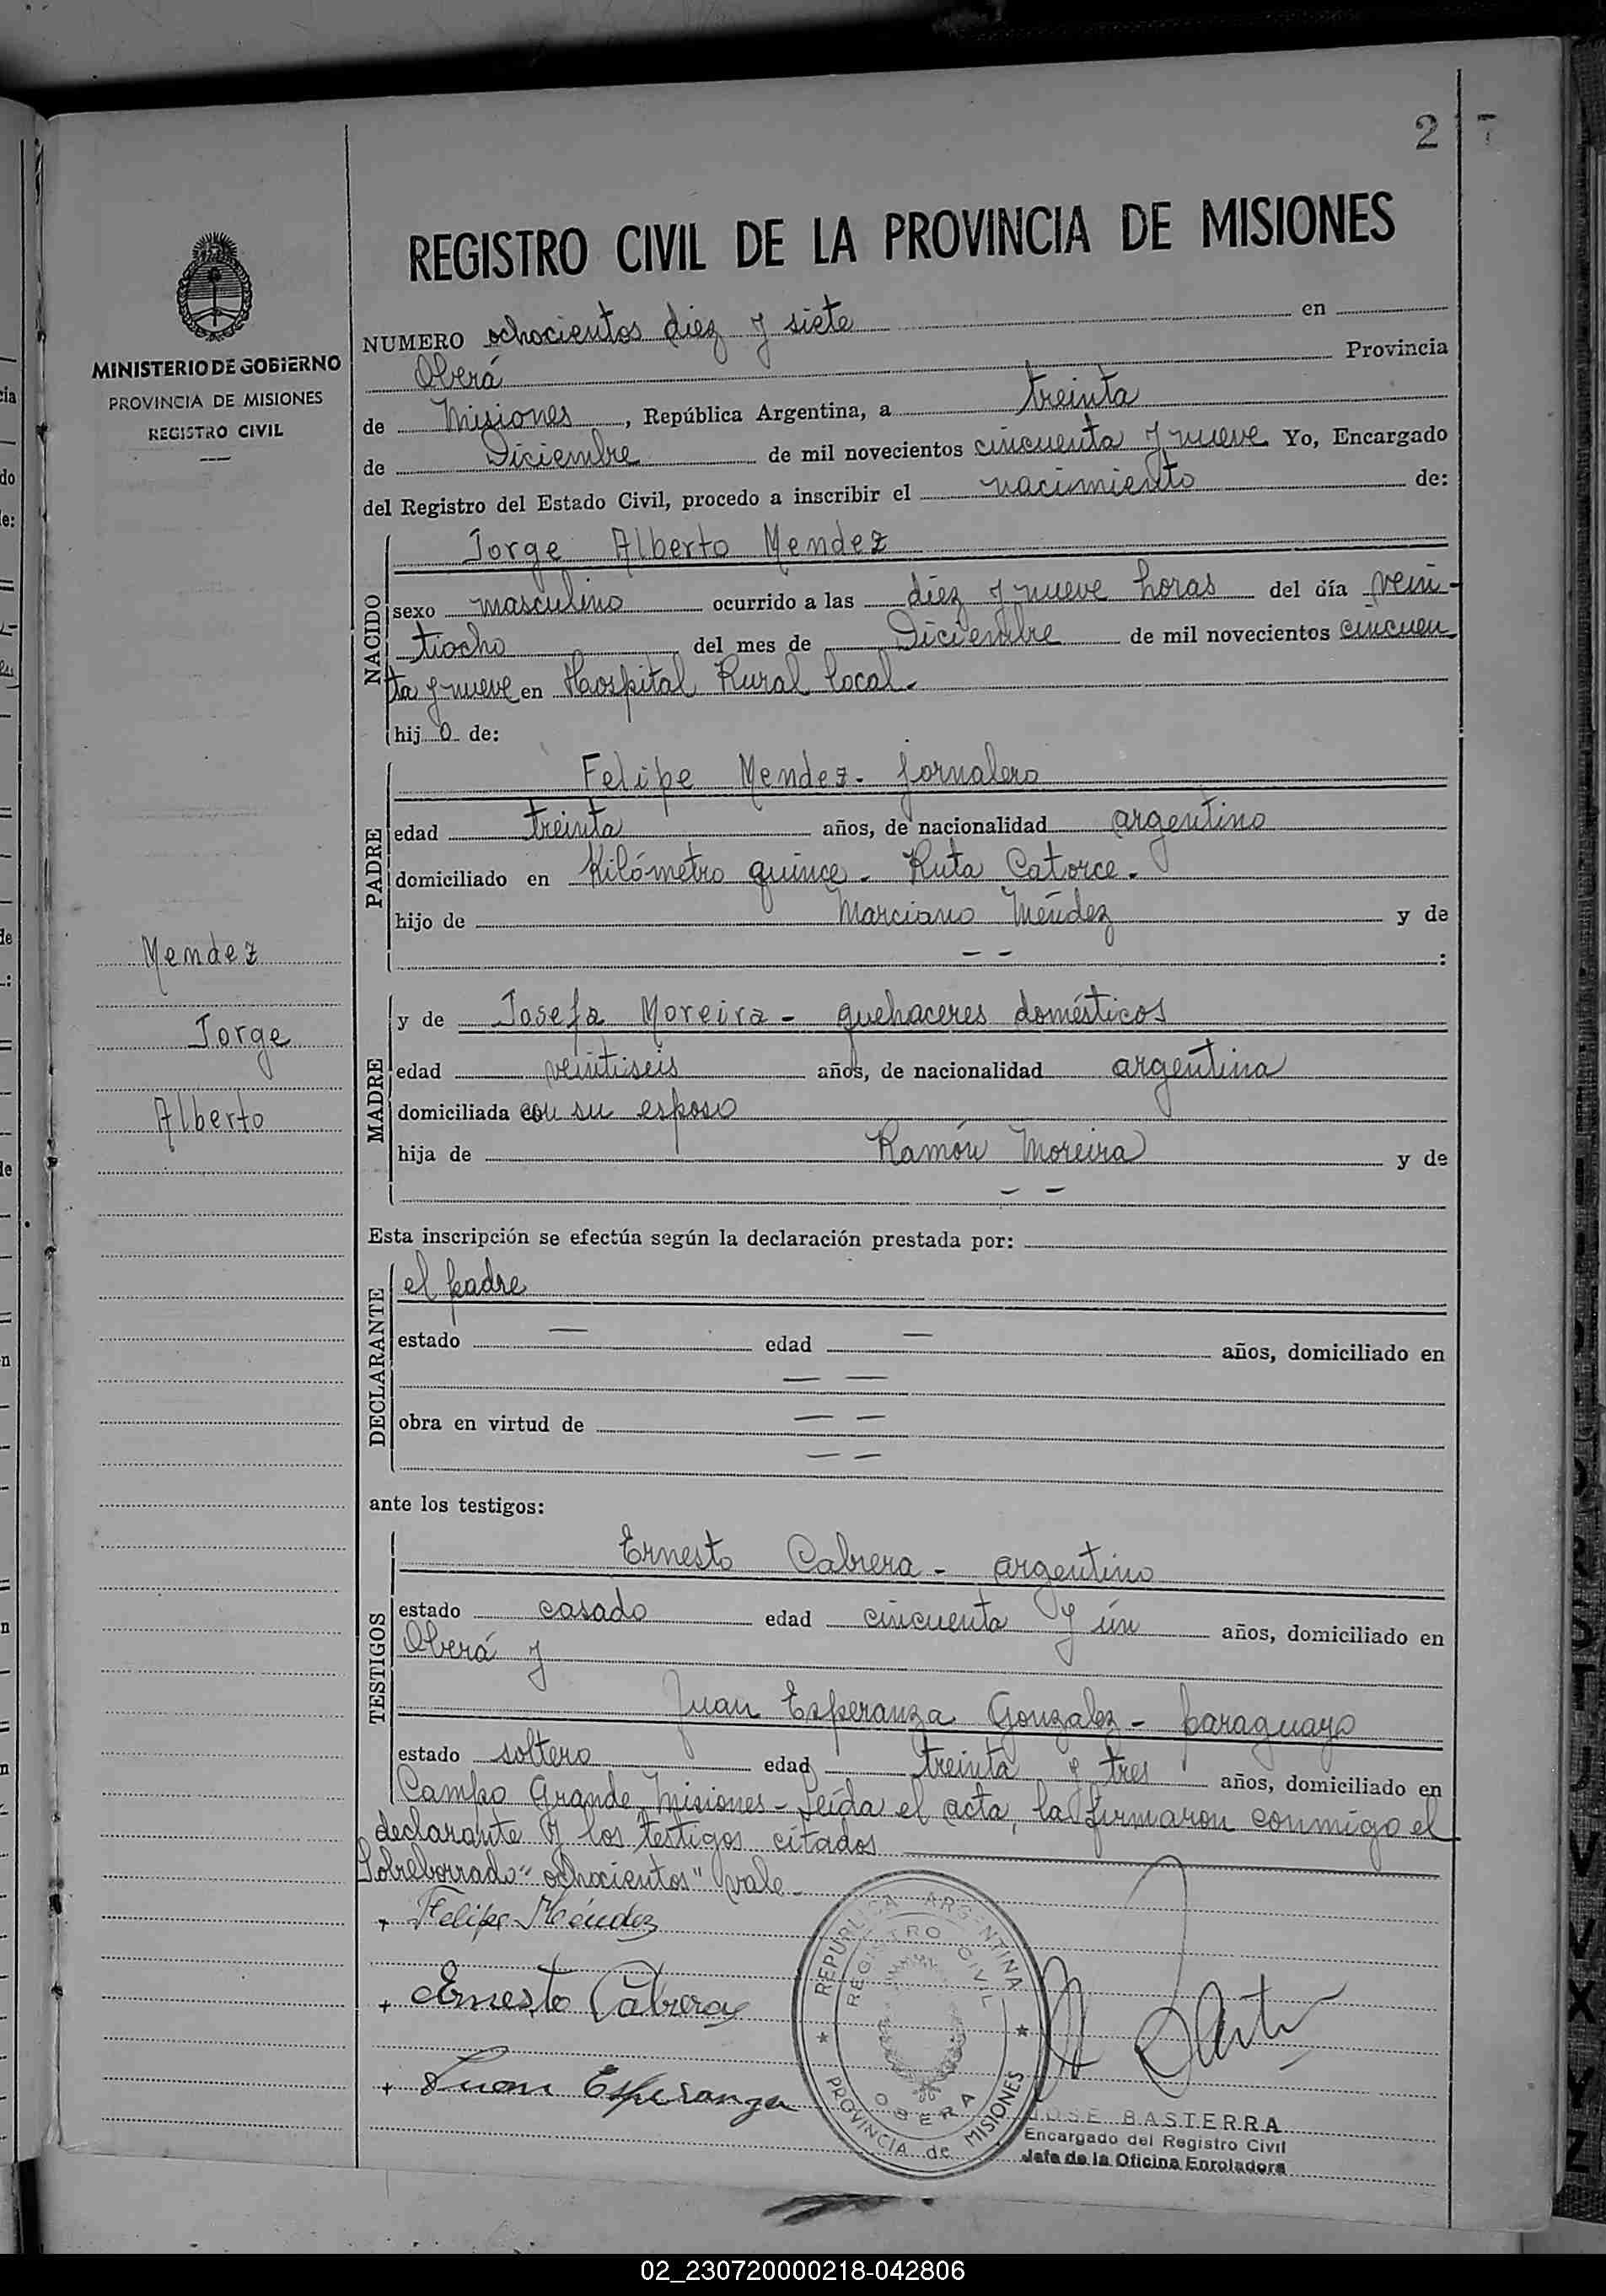 2 7
REGISTRO CIVIL DE LA PROVINCIA DE MISIONES
MINISTERIO DE GOBIERNO
PROVINCIA DE MISIONES
REGISTRO CIVIL
NUMERO ochocientos diez y siete en
Oberá Provincia
de Misiones, República Argentina, a treinta
de Diciembre de mil novecientos cincuenta y nueve Yo, Encargado
del Registro del Estado Civil, procedo a inscribir el nacimiento de:
NACIDO
Jorge Alberto Mendez
sexo masculino ocurrido a las diez y nueve horas del día vein-
tiocho del mes de Diciembre de mil novecientos cincuen
ta y nueve en Hospital Rural local.-
hijo de:
PADRE
Felipe Mendez- jornalero
edad treinta años, de nacionalidad argentino
domiciliado en Kilómetro quince- Ruta Catorce.-
hijo de Marciano Méndez y de
- - :
Mendez
Jorge
Alberto
MADRE
y de Josefa Moreira- quehaceres domésticos
edad veintiseis años, de nacionalidad argentina
domiciliada con su esposo
hija de Ramón Moreira y de
- -
Esta inscripción se efectúa según la declaración prestada por:
DECLARANTE
el padre
estado — edad — años, domiciliado en
— —
obra en virtud de — —
— —
ante los testigos:
TESTIGOS
Ernesto Cabrera- argentino
estado casado edad cincuenta y ún años, domiciliado en
Oberá y
Juan Esperanza Gonzalez- paraguayo
estado soltero edad treinta y tres años, domiciliado en
Campo Grande, Misiones- Leída el acta, la firmaron conmigo el
declarante y los testigos citados
Sobreborrado "ochocientos" vale-
+ Felipe Méndez
+ Ernesto Cabrera
+ Juan Esperanza
REPUBLICA ARGENTINA
REGISTRO CIVIL
OBERA
PROVINCIA de MISIONES
JOSE BASTERRA
Encargado del Registro Civil
Jefe de la Oficina Enroladora
02_230720000218-042806